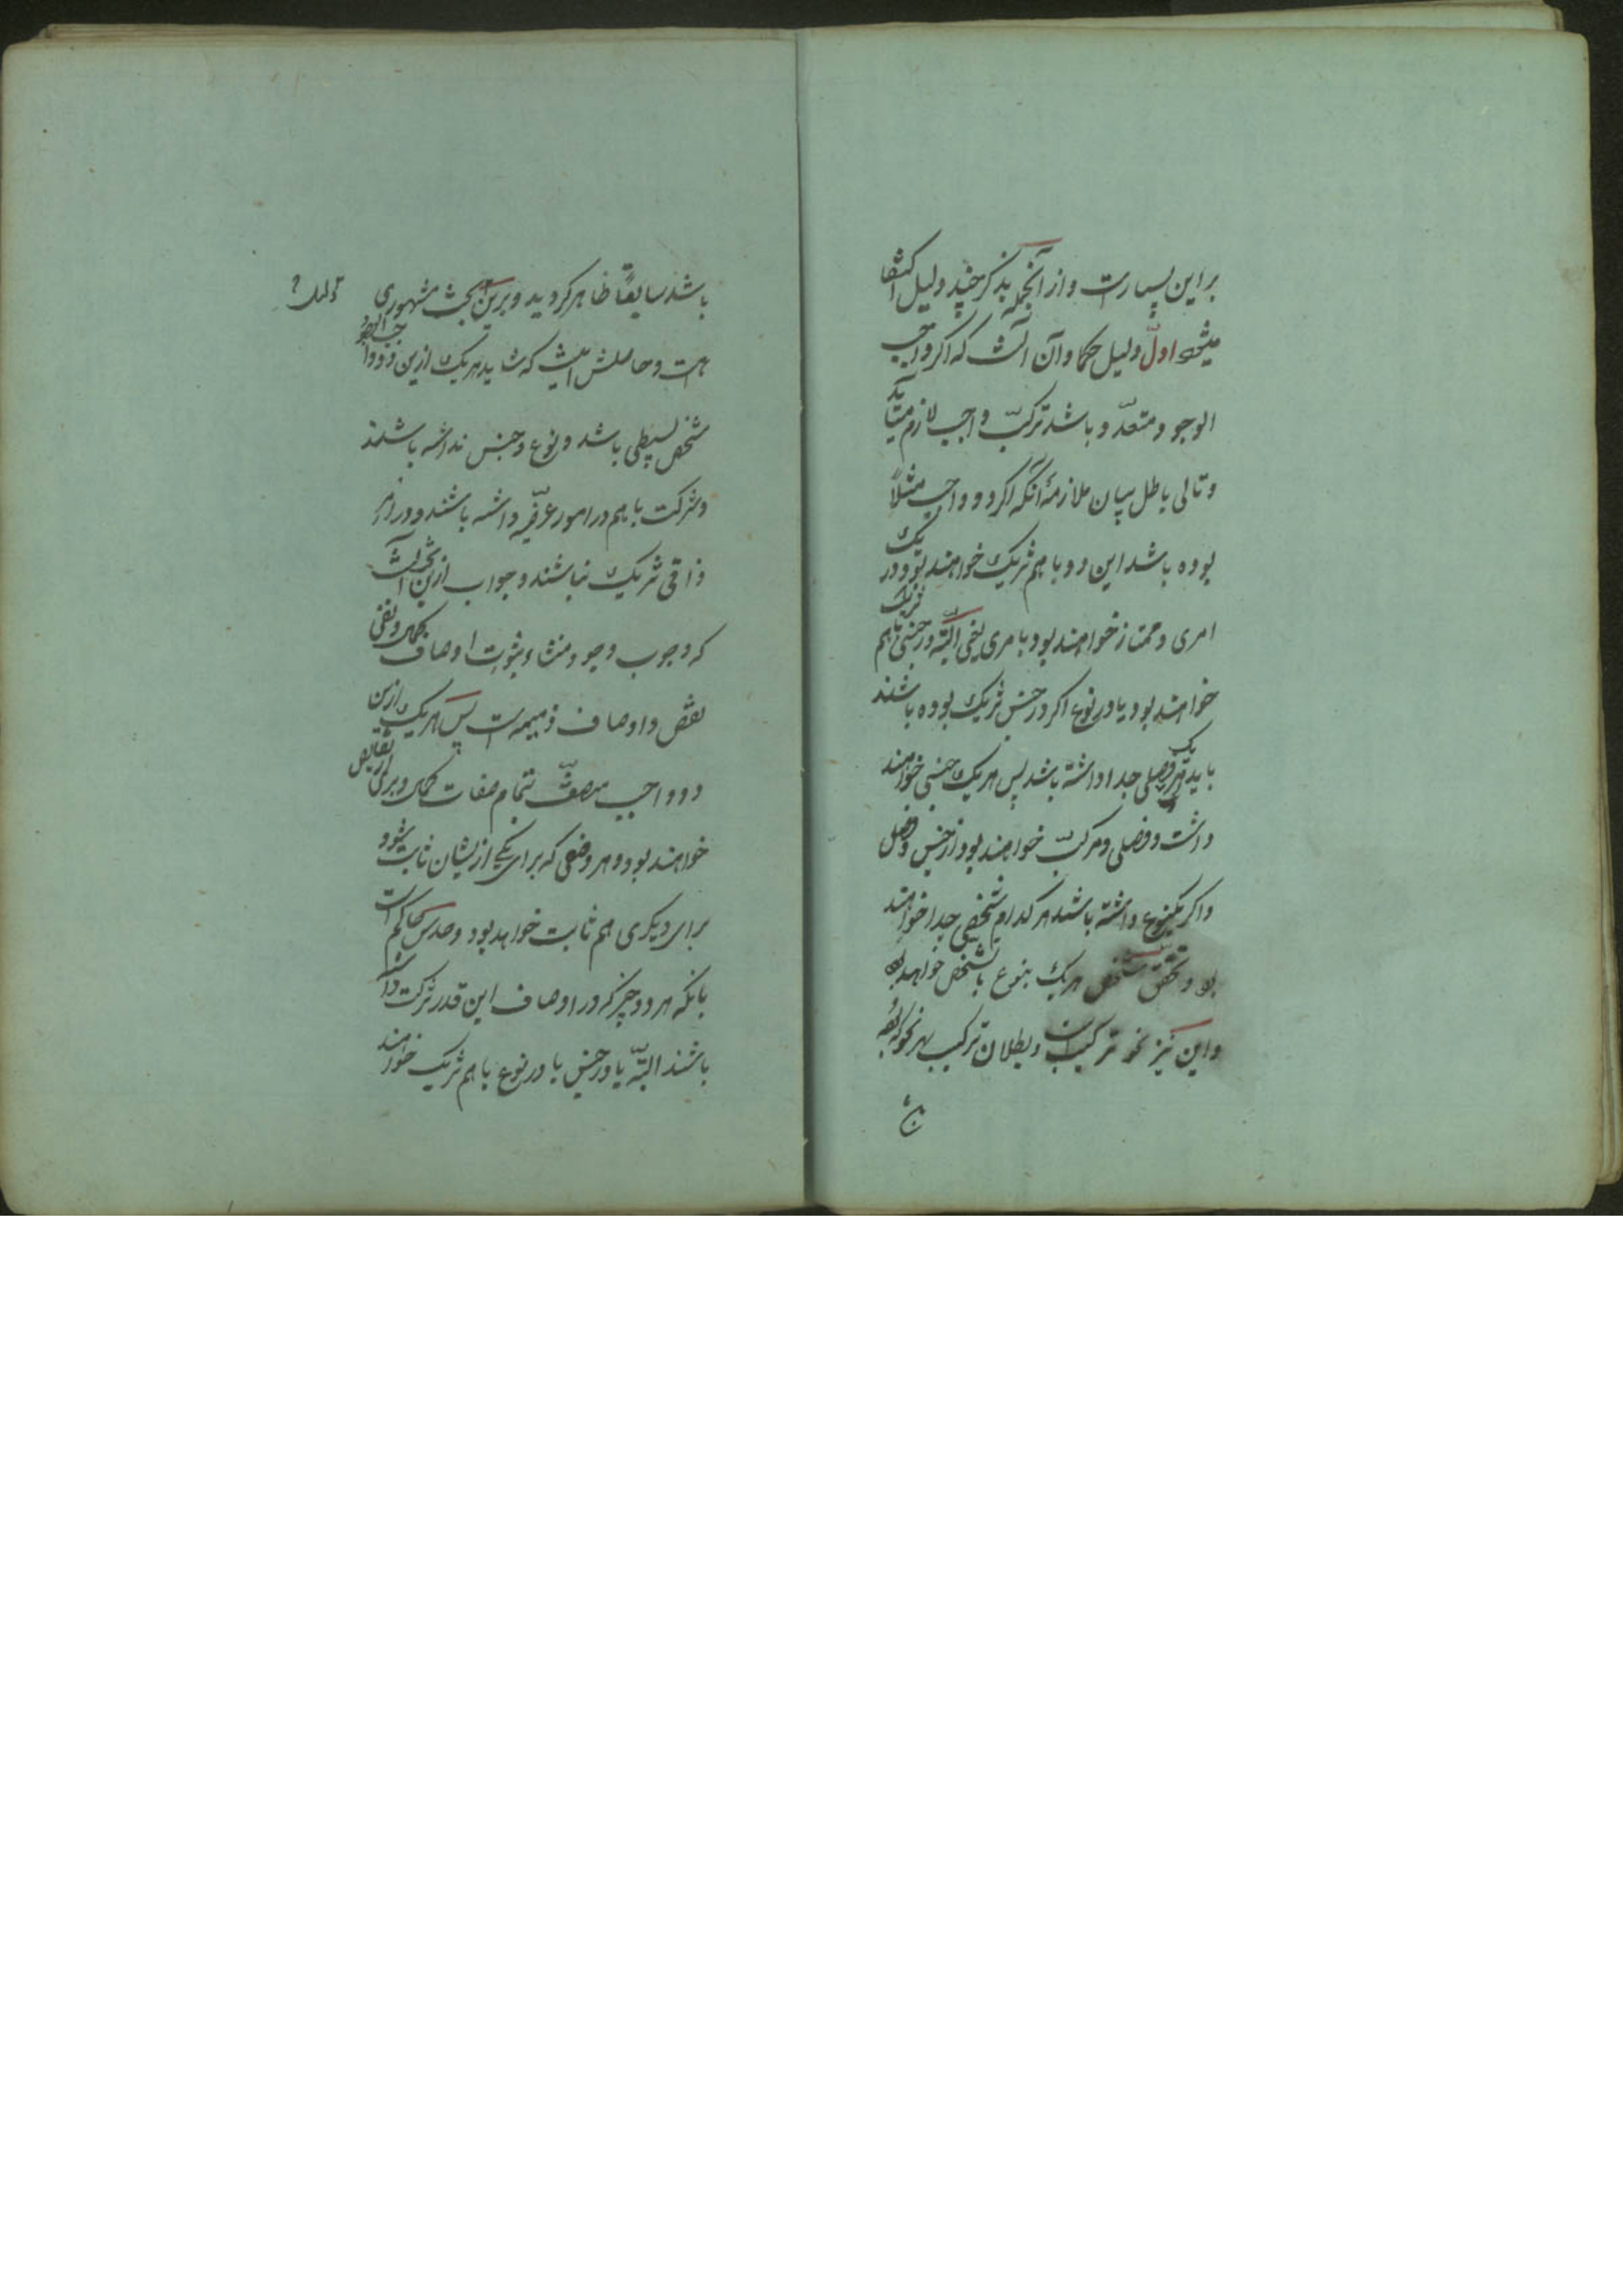 بر این بسیارست و از آنجمله بذکر چند دلیل اکتفا
میشود اوّل دلیل حکما و آن آنست که اگر واجب
الوجود متعدّد باشد ترکّب واجب لازم میآید
و تالی باطل بیان ملازمه آنکه اگر دو واجب مثلاً
بوده باشد این دو با هم شریک خواهند بود در یک
امری و ممتاز خواهند بود بامری یعنی البتّه در جنسی با هم شریک
خواهند بود یا در نوع اگر در جنس شریک بوده باشند
باید هر یک فصلی جدا داشته باشد پس هر یک جنسی خواهند
داشت و فصلی و مرکّب خواهند بود از جنس و فصل
و اگر یکنوع داشته باشند هر کدام تشخّصی جدا خواهند
بود و تحقق شخص هر یک بنوع با تشخص خواهد بود
و این نیز نحو ترکیب است و بطلان ترکیب بهر نحو که بوده
باشد سابقاً ظاهر کردید و برین بحث مشهوری
هست و حاصلش اینست که شاید هر یک ازین دو واجب الوجود
شخص بسیطی باشد و نوع و جنس نداشته باشند
و شرکت با هم در امور عرضیّه داشته باشند و در امر
ذاتی شریک نباشند و جواب ازین بحث آنست
که وجوب وجود منشاء ثبوت اوصاف کمال و نفی
نقص و اوصاف ذمیمه است پس هر یک ازین
دو واجب متصف بتمام صفات کمال و بری از نقایص
خواهند بود و هر وصفی که برای یکی ازیشان ثابت شود
برای دیگری هم ثابت خواهد بود و حدس حاکم است
بانکه هر دو چیز که در اوصاف این قدر شرکت داشته
باشند البتّه یا در جنس یا در نوع با هم شریک خواهند